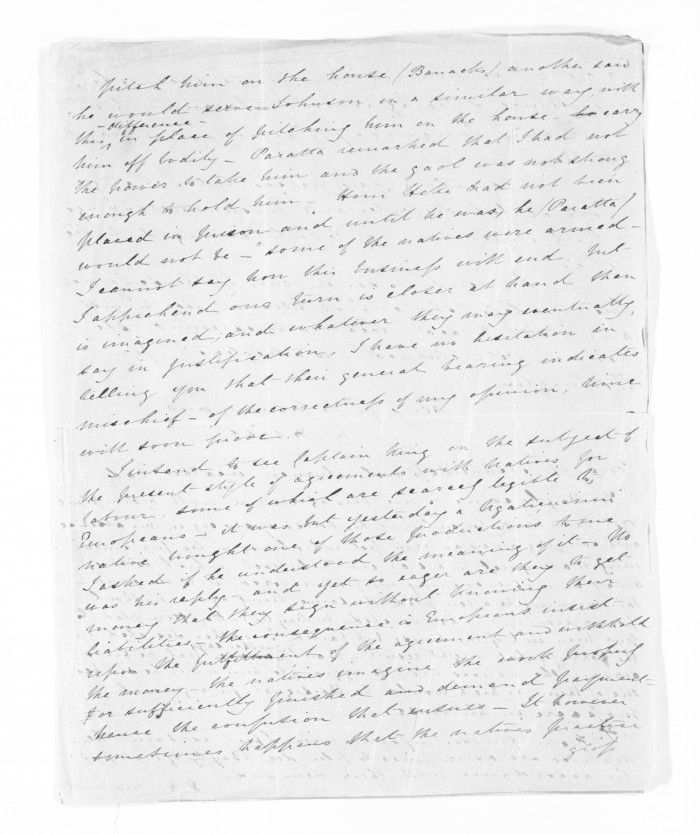 pitch him on the house (Barracks) another said
he would serve Johnson in a similar way with
- difference -
this, in place of pitching him on the house - to carry
him off bodily - Paratta remarked that I had not
the power to take him and the gaol was not strong
enough to hold him - Honi Heke had not been
placed in prison and until he was, he (Paratta)
would not be - some of the natives were armed -
I cannot say how this business will end, but
I apprehend one turn is closer at hand than
is imagined, and whatever they may eventually
say in justification, I have no hesitation in
telling you that their general bearing indicates
mischief - of the correctness of my opinion, time
will soon prove. -
I intend to see Captain King on the subject of
the present style of agreements with natives for
labour some of which are scarcely legible to
Europeans - it was but yesterday a Ngatiawa
native brought one of those productions to me
I asked if he understood the meaning of it - No
was his reply - and yet so eager are they to get
money that they sign without knowing their
liabilities - the consequence is Europeans insist
upon the fulfilment of the agreement and withhold
the money - the natives imagine the work
for sufficiently finished and demand payment -
hence the confusion that ensues - It however
sometimes happens that the natives practice